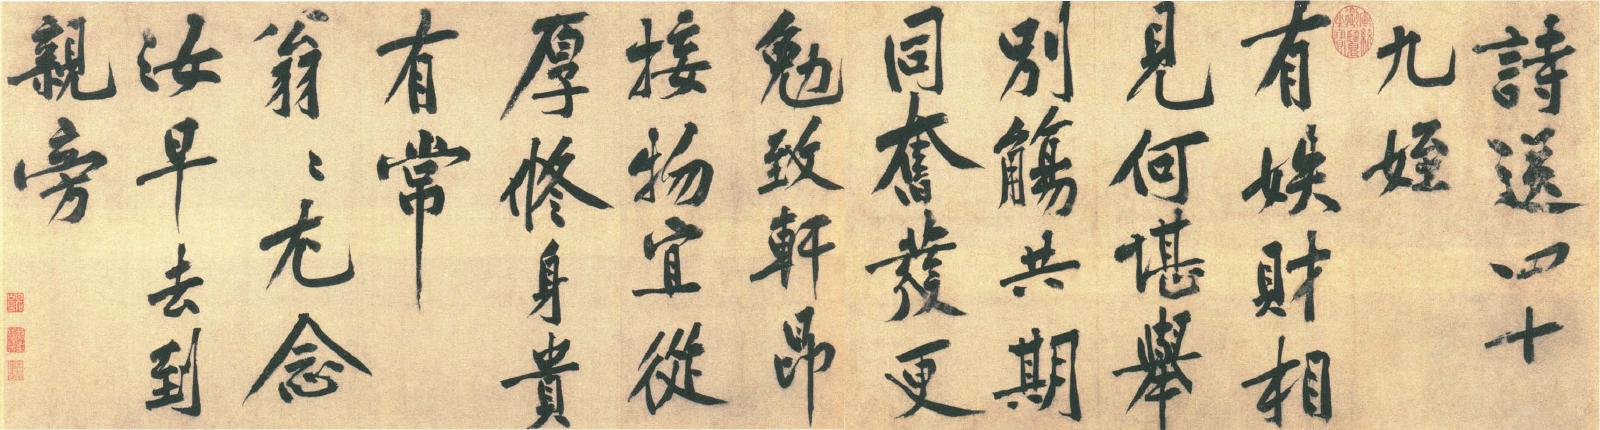 詩送四十
九姪
有娭財相
見何堪舉
別觴共期
同奮發更
勉致軒昂
接物宜從
厚修身貴
有常
翁〻尤念
汝早去到
親旁